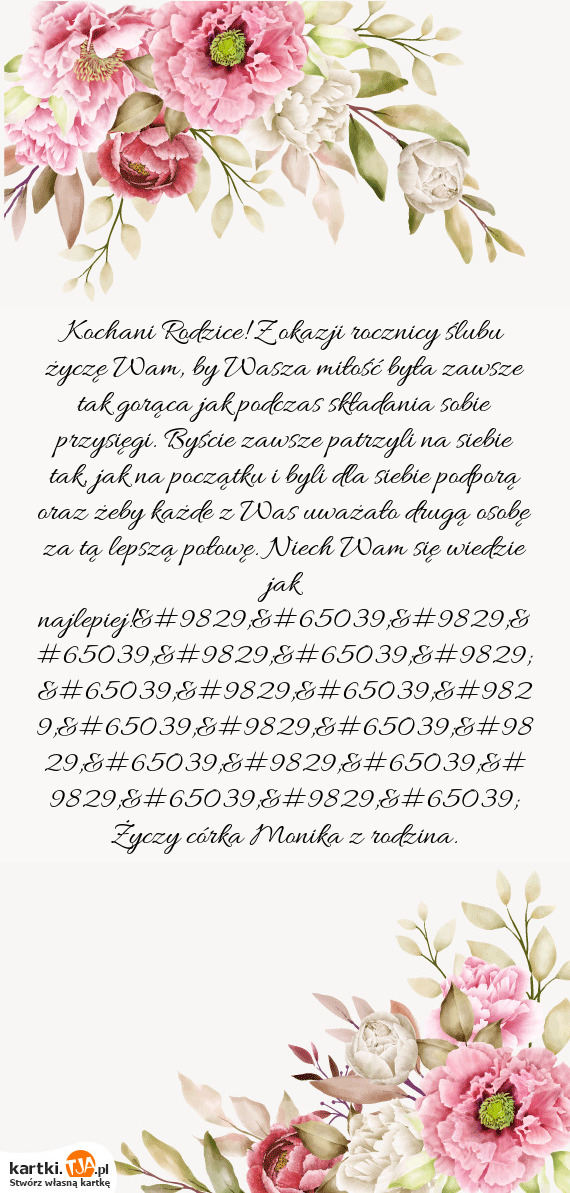 Kochani Rodzice! Z okazji rocznicy ślubu
życzę Wam, by Wasza miłość była zawsze
tak gorąca jak podczas składania sobie
przysięgi. Byście zawsze patrzyli na siebie
tak, jak na początku i byli dla siebie podporą
oraz żeby każde z Was uważało drugą osobę
za tą lepszą połowę. Niech Wam się wiedzie
jak
najlepiej!&#9829;&#65039;&#9829;&
#65039;&#9829;&#65039;&#9829;
&#65039;&#9829;&#65039;&#982
9;&#65039;&#9829;&#65039;&#98
29;&#65039;&#9829;&#65039;&#
9829;&#65039;&#9829;&#65039;
Życzy córka Monika z rodzina.
kartki.TJA.pl
Stwórz własną kartkę